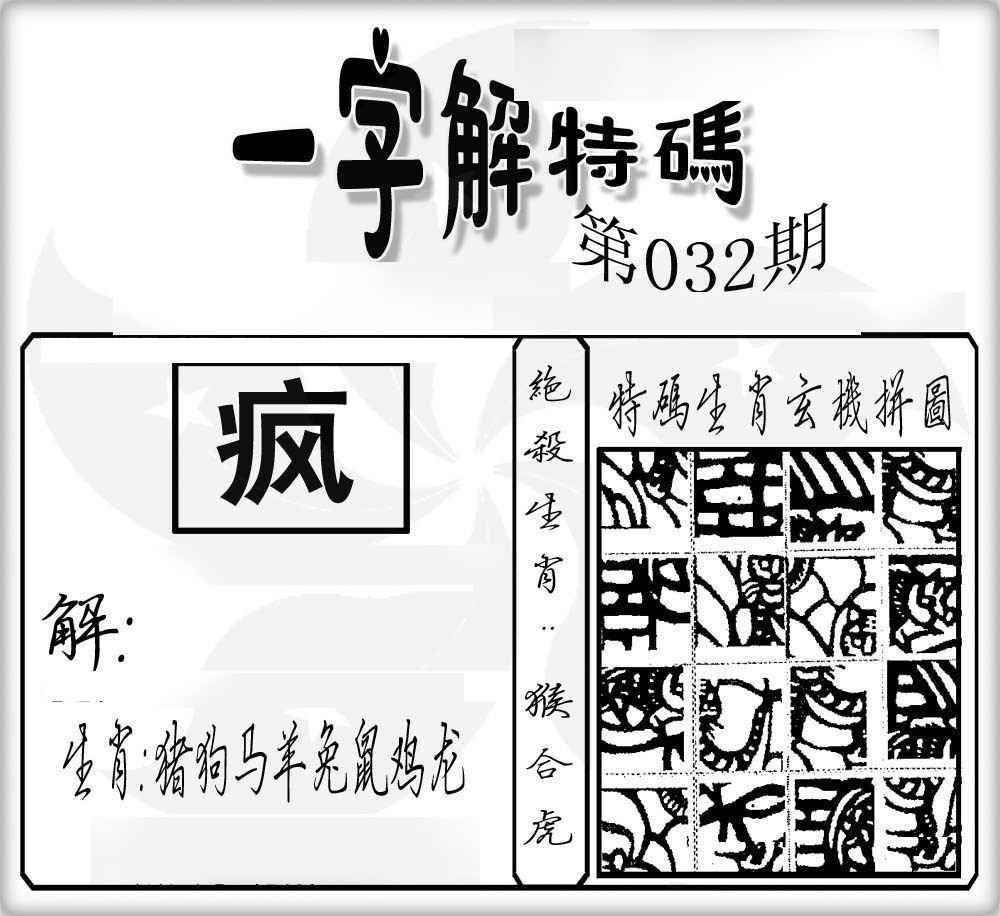 一字解特碼
第032期
疯
解:
生肖:猪狗马羊兔鼠鸡龙
絕殺生肖:猴合虎
特碼生肖玄機拼圖